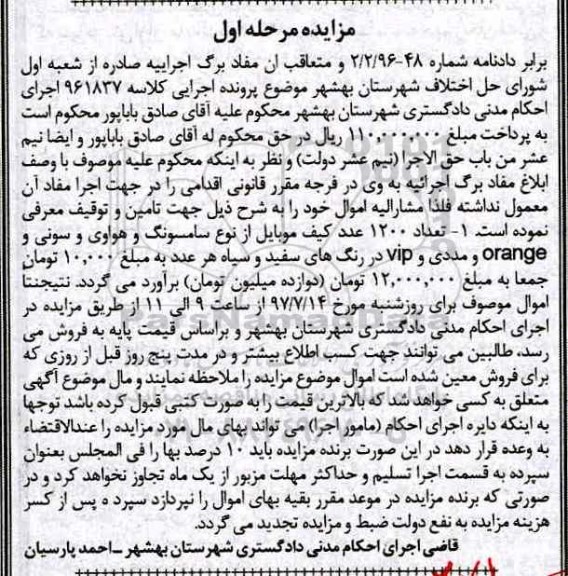 مزایده مرحله اول
برابر دادنامه شماره ۴۸-۲/۲/۹۶ و متعاقب ان مفاد برگ اجراییه صادره از شعبه اول
شورای حل اختلاف شهرستان بهشهر موضوع پرونده اجرایی کلاسه ۹۶۱۸۳۷ اجرای
احکام مدنی دادگستری شهرستان بهشهر محکوم علیه آقای صادق باباپور محکوم است
به پرداخت مبلغ ۱۱۰,۰۰۰,۰۰۰ ریال در حق محکوم له آقای صادق باباپور و ایضا نیم
عشر من باب حق الاجرا (نیم عشر دولت) و نظر به اینکه محکوم علیه موصوف با وصف
ابلاغ مفاد برگ اجرائیه به وی در فرجه مقرر قانونی اقدامی را در جهت اجرا مفاد آن
معمول نداشته فلذا مشارالیه اموال خود را به شرح ذیل جهت تامین و توقیف معرفی
نموده است. ۱- تعداد ۱۲۰۰ عدد کیف موبایل از نوع سامسونگ و هواوی و سونی و
orange و مددی و vip در رنگ های سفید و سیاه هر عدد به مبلغ ۱۰,۰۰۰ تومان
جمعا به مبلغ ۱۲,۰۰۰,۰۰۰ تومان (دوازده میلیون تومان) برآورد می گردد. نتیجتاً
اموال موصوف برای روزشنبه مورخ ۹۷/۷/۱۴ از ساعت ۹ الی ۱۱ از طریق مزایده در
اجرای احکام مدنی دادگستری شهرستان بهشهر و براساس قیمت پایه به فروش می
رسد، طالبین می توانند جهت کسب اطلاع بیشتر و در مدت پنج روز قبل از روزی که
برای فروش معین شده است اموال موضوع مزایده را ملاحظه نمایند و مال موضوع آگهی
متعلق به کسی خواهد شد که بالاترین قیمت را به صورت کتبی قبول کرده باشد توجها
به اینکه دایره اجرای احکام (مامور اجرا) می تواند بهای مال مورد مزایده را عندالاقتضاء
به وعده قرار دهد در این صورت برنده مزایده باید ۱۰ درصد بها را فی المجلس بعنوان
سپرده به قسمت اجرا تسلیم و حداکثر مهلت مزبور از یک ماه تجاوز نخواهد کرد و در
صورتی که برنده مزایده در موعد مقرر بقیه بهای اموال را نپردازد سپرد ه پس از کسر
هزینه مزایده به نفع دولت ضبط و مزایده تجدید می گردد.
قاضی اجرای احکام مدنی دادگستری شهرستان بهشهر _احمد پارسیان